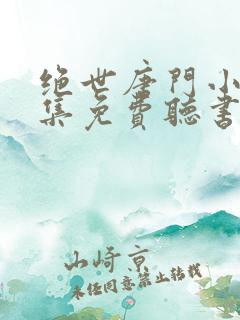 绝世唐門小
集免費聽書
山崎京
未经同意禁止转载